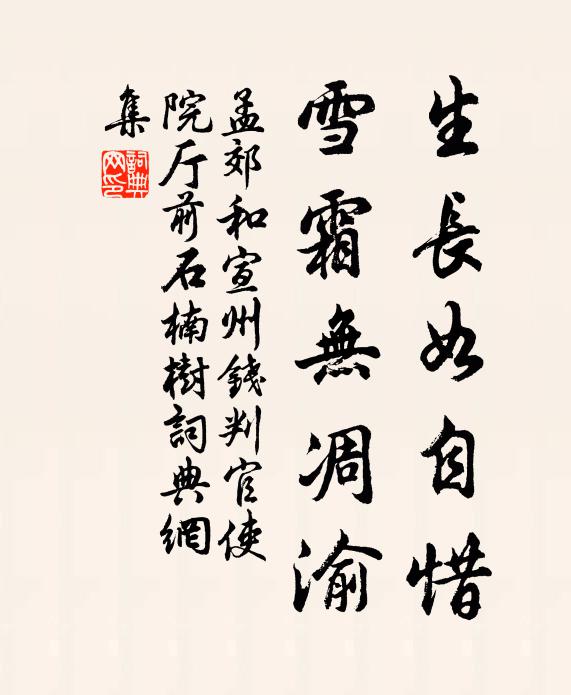 生長如自惜
雪霜無凋渝
孟郊和宣州錢判官使
院厅前石楠樹詞典網
集
詞典網印